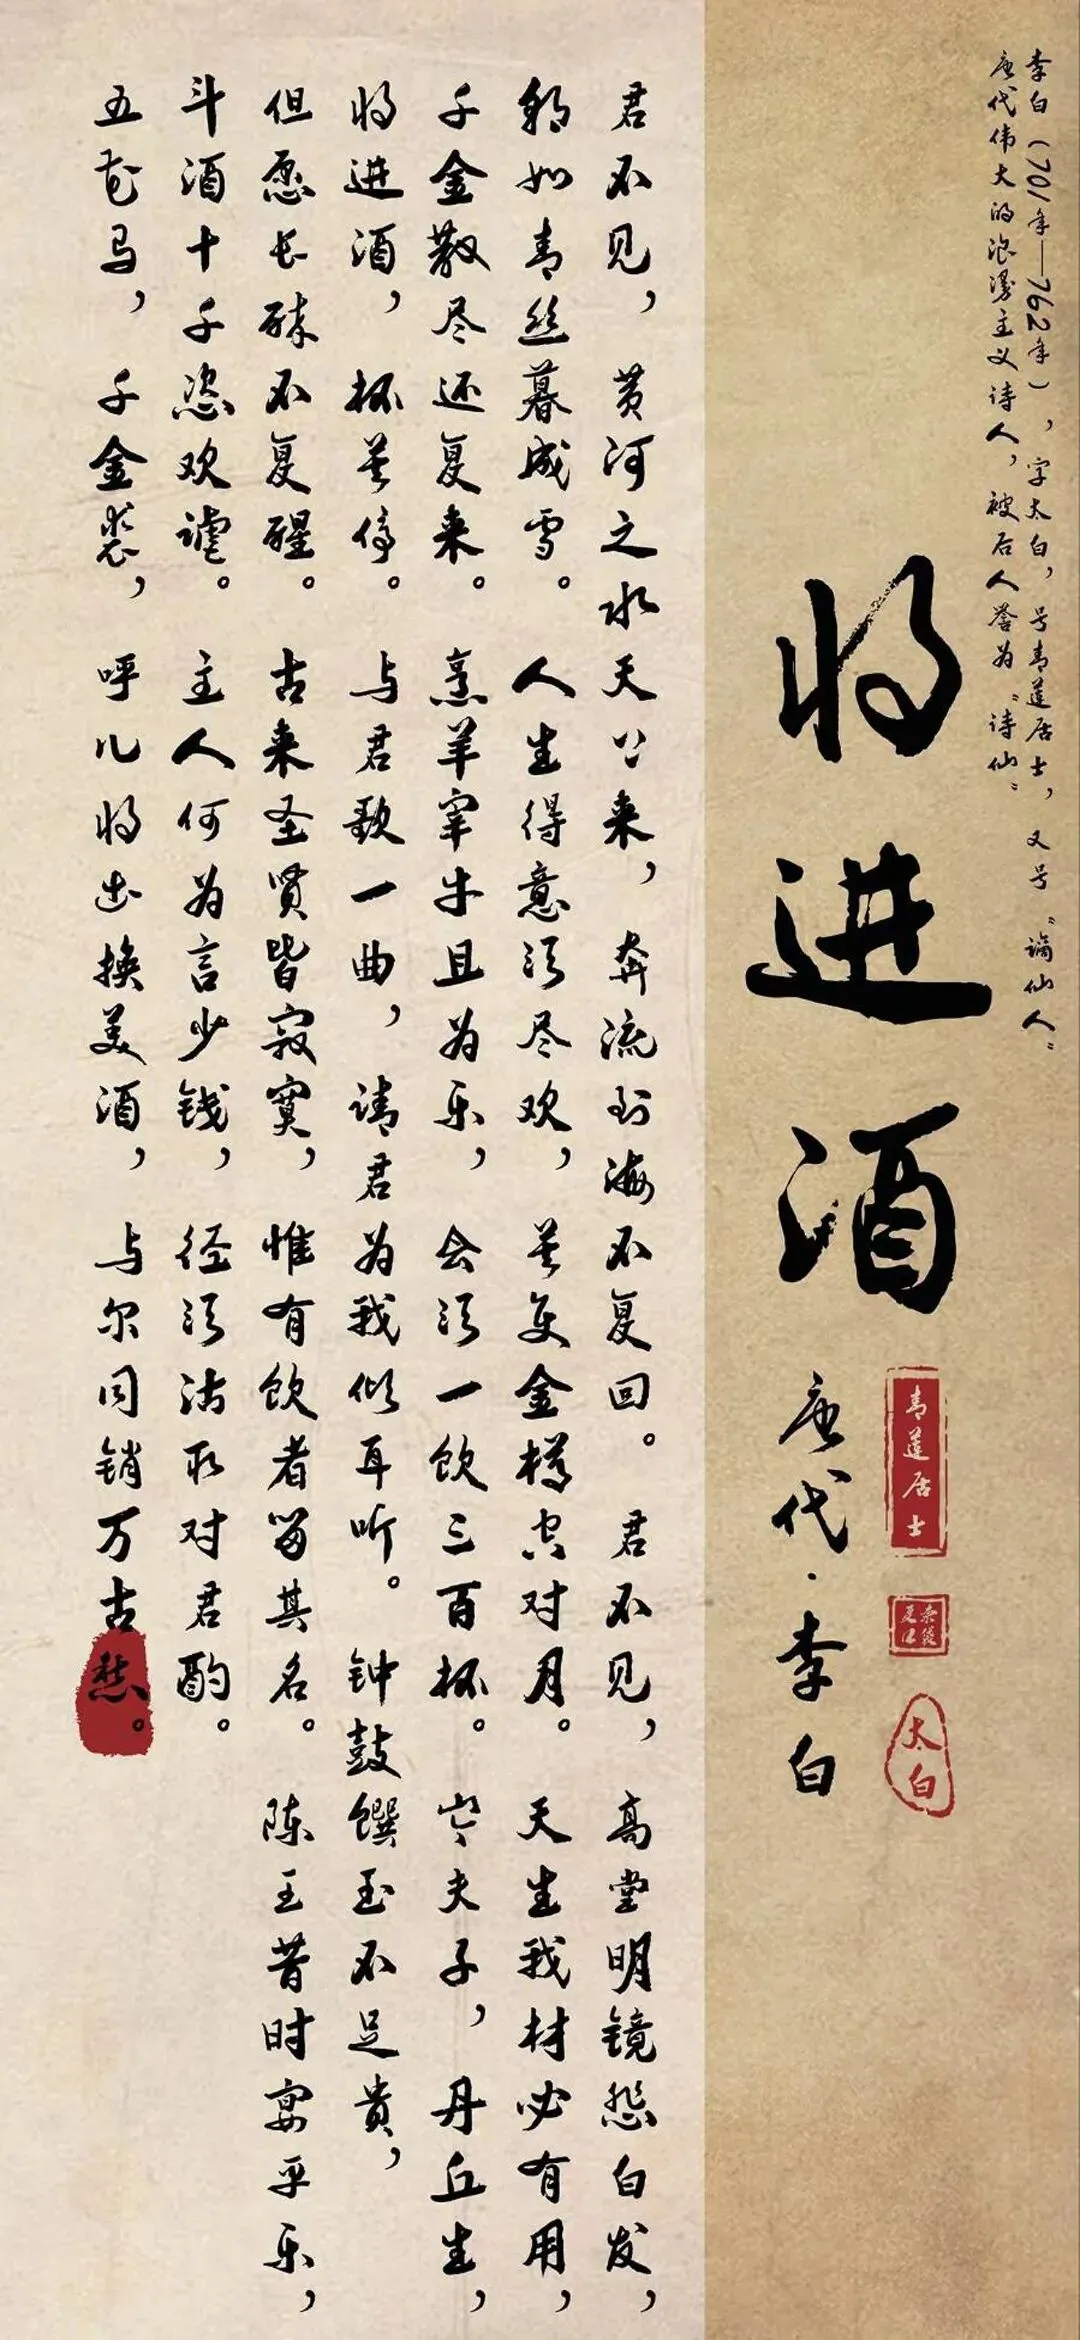 李白（701年—762年），字太白，号青莲居士，又号“谪仙人”
唐代伟大的浪漫主义诗人，被后人誉为“诗仙”
将进酒
青莲居士
太白
唐代·李白
君不见，黄河之水天上来，奔流到海不复回。君不见，高堂明镜悲白发，
朝如青丝暮成雪。人生得意须尽欢，莫使金樽空对月。天生我材必有用，
千金散尽还复来。烹羊宰牛且为乐，会须一饮三百杯。岑夫子，丹丘生，
将进酒，杯莫停。与君歌一曲，请君为我倾耳听。钟鼓馔玉不足贵，
但愿长醉不复醒。古来圣贤皆寂寞，惟有饮者留其名。陈王昔时宴平乐，
斗酒十千恣欢谑。主人何为言少钱，径须沽取对君酌。
五花马，千金裘，呼儿将出换美酒，与尔同销万古愁。